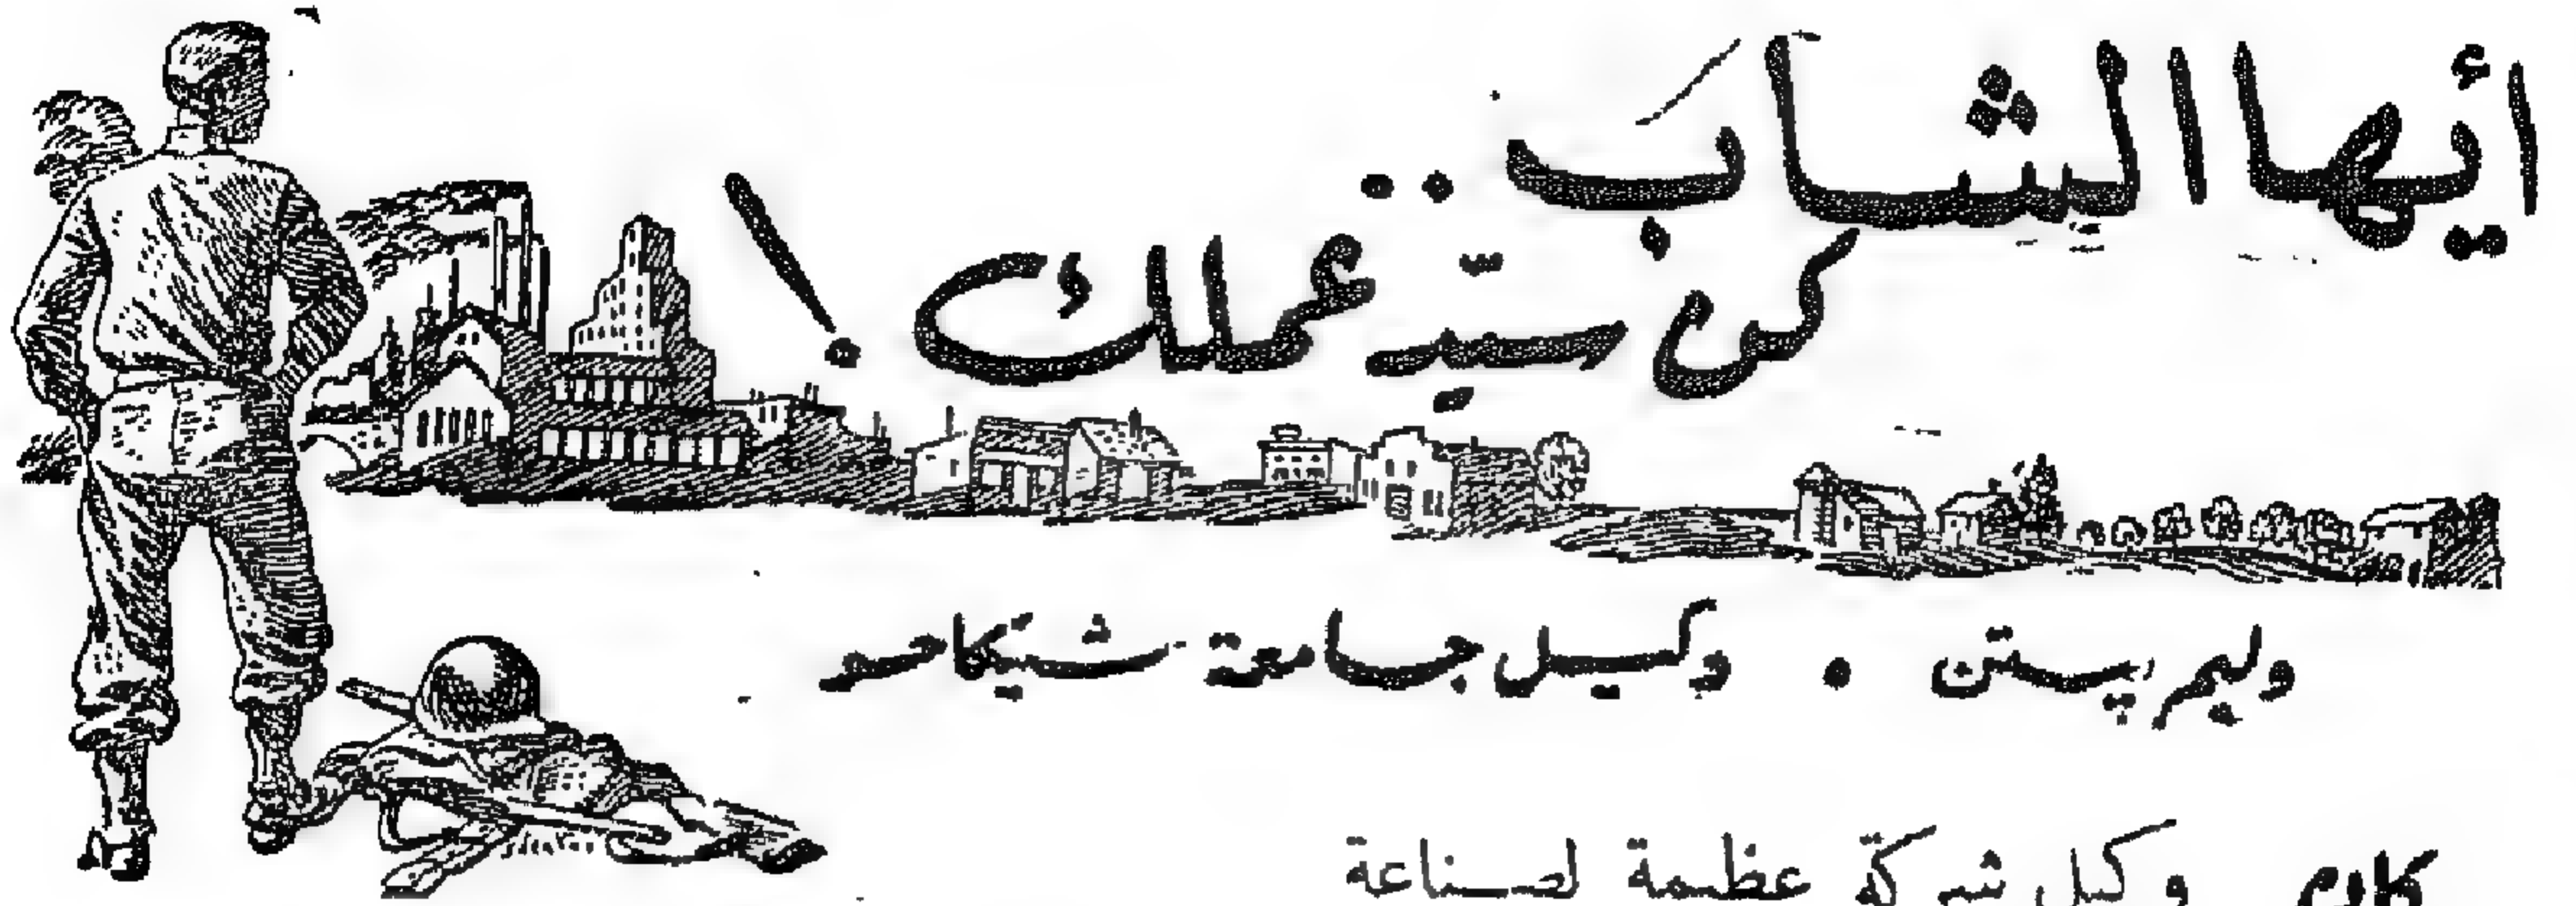 أيها الشاب..
كن سيّد عملك!
وليم پستن . وكيل جامعة شيكاجو
وكيل شركة عظيمة لصناعة